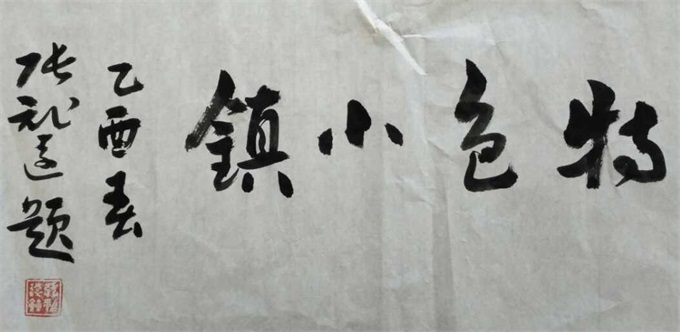 特色小鎮
乙酉春
张礼 题